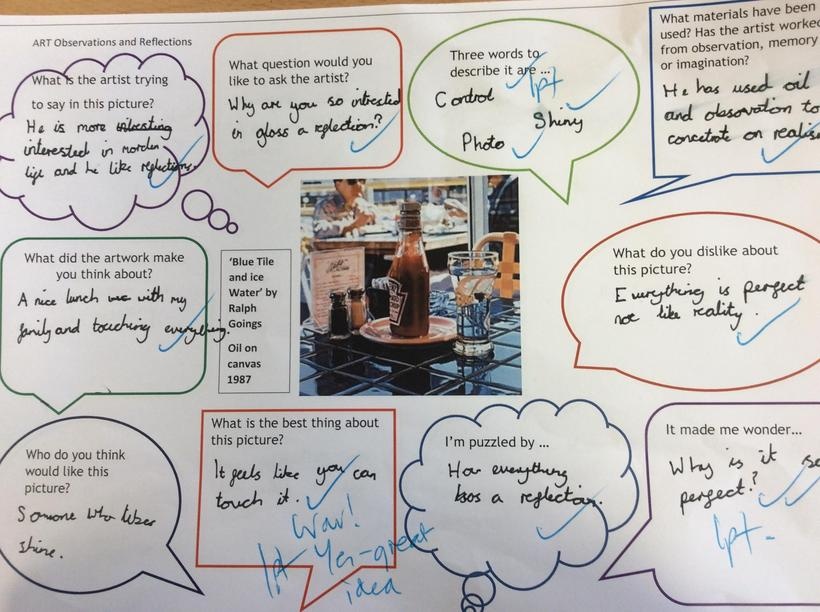 ART Observations and Reflections
What is the artist trying
to say in this picture?
He is more intresting
interested in morden
life and he like reflections.
What question would you
like to ask the artist?
Why are you so intrested
in gloss a reflection?
Three words to
describe it are ...
1pt
Control
Shiny
Photo
What materials have been
used? Has the artist worked
from observation, memory
or imagination?
He has used oil
and obsovation to
concetrate on realis
What did the artwork make
you think about?
A nice lunch with my
family and touching everything.
'Blue Tile
and ice
Water' by
Ralph
Goings
Oil on
canvas
1987
What do you dislike about
this picture?
Everything is perfect
not like reality.
Who do you think
would like this
picture?
Somone who likes
shine.
What is the best thing about
this picture?
It feels like you can
touch it.
Wow!
1pt Yes-great
idea
I'm puzzled by ...
How everything
has a reflection.
It made me wonder...
Why is it so
perfect?
1pt-